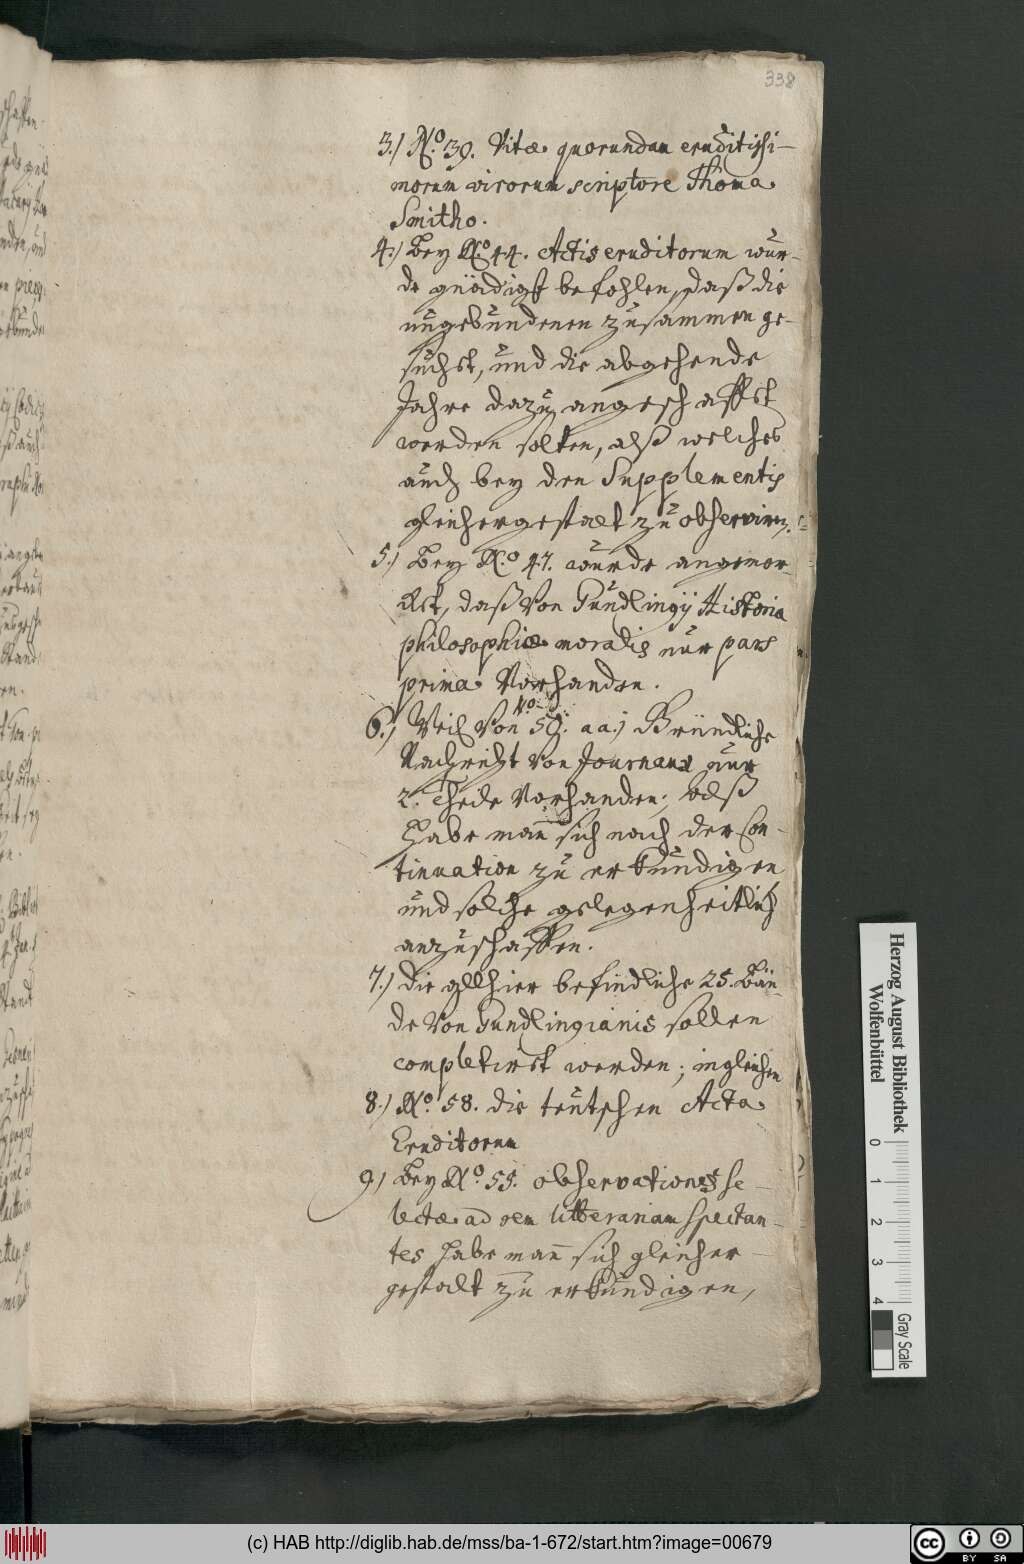 338
3.) No. 39. Vitæ quorundam eruditissi-
morum virorum scriptore Thoma
Smitho.
4.) Bey No. 44. Actis eruditorum wur-
de gnädigst befohlen, daß die
ungebundenen zusammen ge-
sucht, und die abgehende
Jahre dazu angeschafft
werden solten, alß welches
auch bey den Supplementis
gleichergestalt zu observiren.
5.) Bey No. 47. wurde angemer-
ckt, daß von Gundlingij Historia
philosophiæ moralis nur pars
prima vorhanden.
6.) Weil von No. 50. aa.) Gründliche
Nachricht von Journaux nur
2. Theile vorhanden; alß
habe man sich nach der Con-
tinuation zu erkundigen
und solche gelegenheitlich
anzuschaffen.
7.) die allhier befindliche 25. Bän-
de von Gundlingianis sollen
completirt werden; ingleichen
8.) No. 58. die teutschen Acta
Eruditorum
9.) Bey No. 55. observationes se-
lectæ ad rem litterariam spectan-
tes habe man sich gleicher-
gestalt zu erkundigen,
Herzog August Bibliothek
Wolfenbüttel
0 1 2 3 4
Gray Scale
(c) HAB http://diglib.hab.de/mss/ba-1-672/start.htm?image=00679
cc BY SA